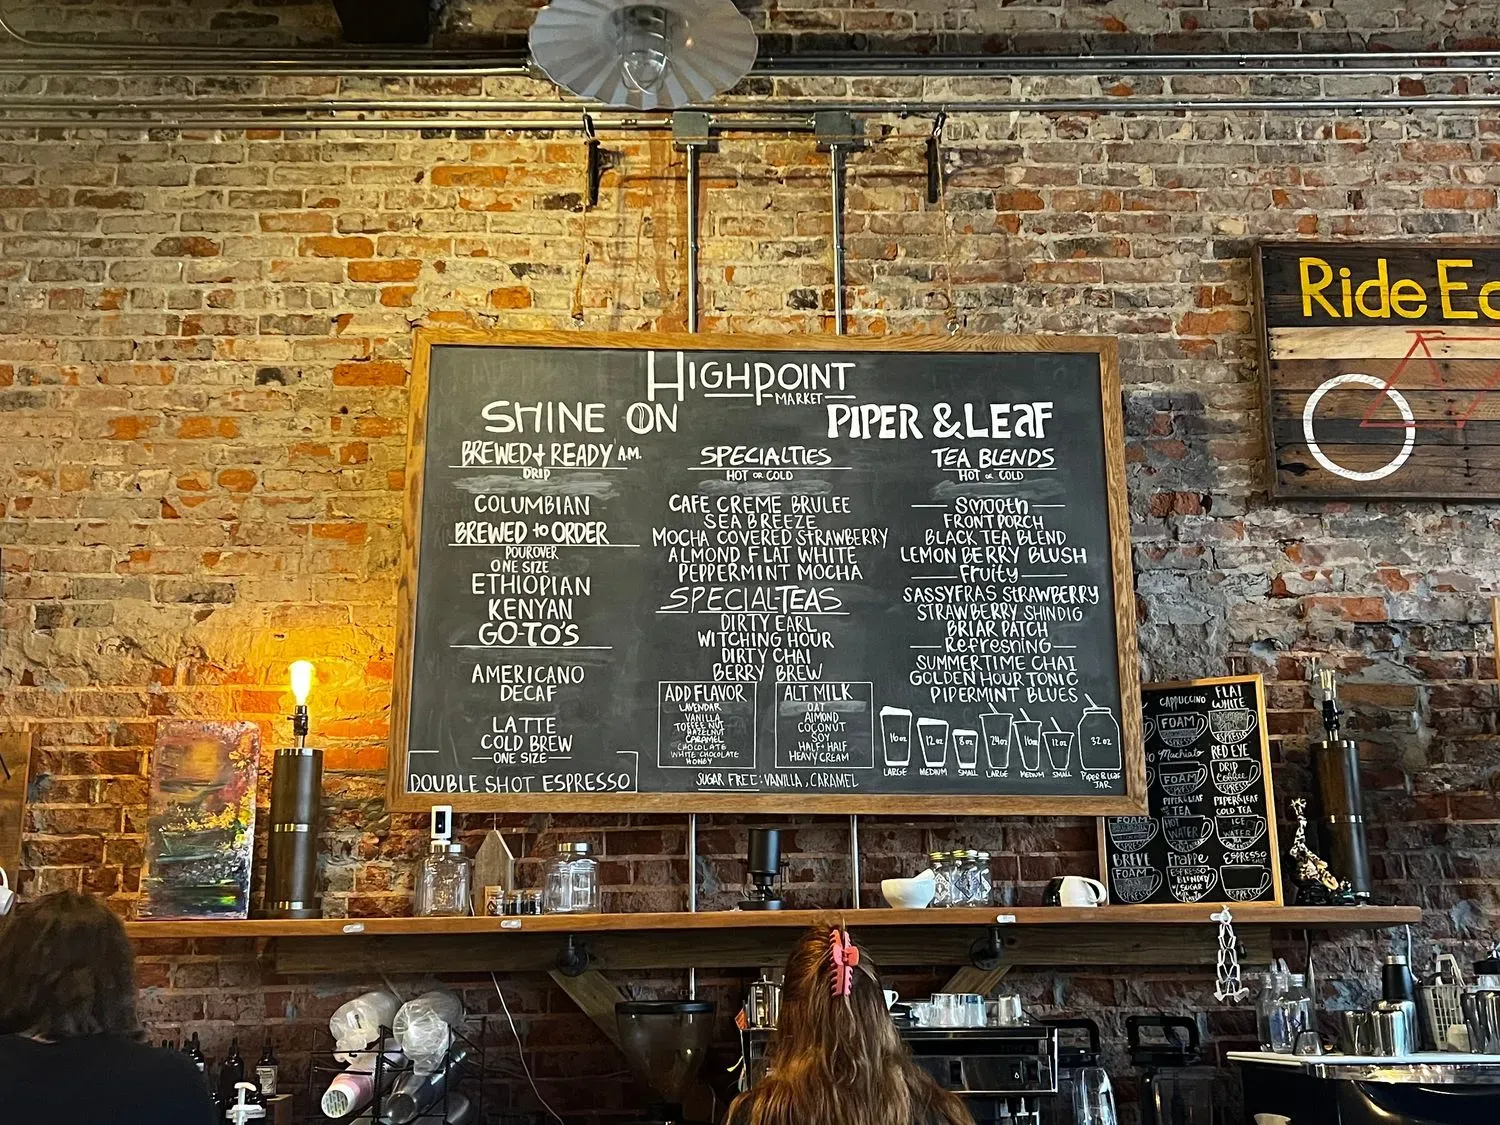 HIGHPOINT
MARKET
SHINE ON
BREWED & READY A.M.
DRIP
COLUMBIAN
BREWED to ORDER
POUROVER
ONE SIZE
ETHIOPIAN
KENYAN
GO-TO'S
AMERICANO
DECAF
LATTE
COLD BREW
ONE SIZE
DOUBLE SHOT ESPRESSO
SPECIALTIES
HOT or COLD
CAFE CREME BRULEE
SEA BREEZE
MOCHA COVERED STRAWBERRY
ALMOND FLAT WHITE
PEPPERMINT MOCHA
SPECIALTEAS
DIRTY EARL
WITCHING HOUR
DIRTY CHAI
BERRY BREW
ADD FLAVOR
LAVENDAR
VANILLA
TOFFEE NUT
HAZELNUT
CARAMEL
CHOCOLATE
WHITE CHOCOLATE
HONEY
ALT MILK
OAT
ALMOND
COCONUT
SOY
HALF+HALF
HEAVY CREAM
SUGAR FREE: VANILLA, CARAMEL
PIPER & LEAF
TEA BLENDS
HOT or COLD
Smooth
FRONT PORCH
BLACK TEA BLEND
LEMON BERRY BLUSH
Fruity
SASSYFRAS STRAWBERRY
STRAWBERRY SHINDIG
BRIAR PATCH
Refreshing
SUMMERTIME CHAI
GOLDEN HOUR TONIC
PIPERMINT BLUES
16oz 12oz 8oz 24oz 16oz 12oz 32oz
LARGE MEDIUM SMALL LARGE MEDIUM SMALL PIPER & LEAF
JAR
Ride
CAPPUCCINO
FOAM
ESPRESSO
Machiato
FOAM
ESPRESSO
PIPER & LEAF
TEA
HOT
WATER
Frappe
ESPRESSO
BLENDED
FLAT
WHITE
ESPRESSO
RED EYE
DRIP
Coffee
ESPRESSO
PIPER & LEAF
COLD TEA
ICE
WATER
ESPRESSO
ESPRESSO
FOAM
BREVE
FOAM
ESPRESSO